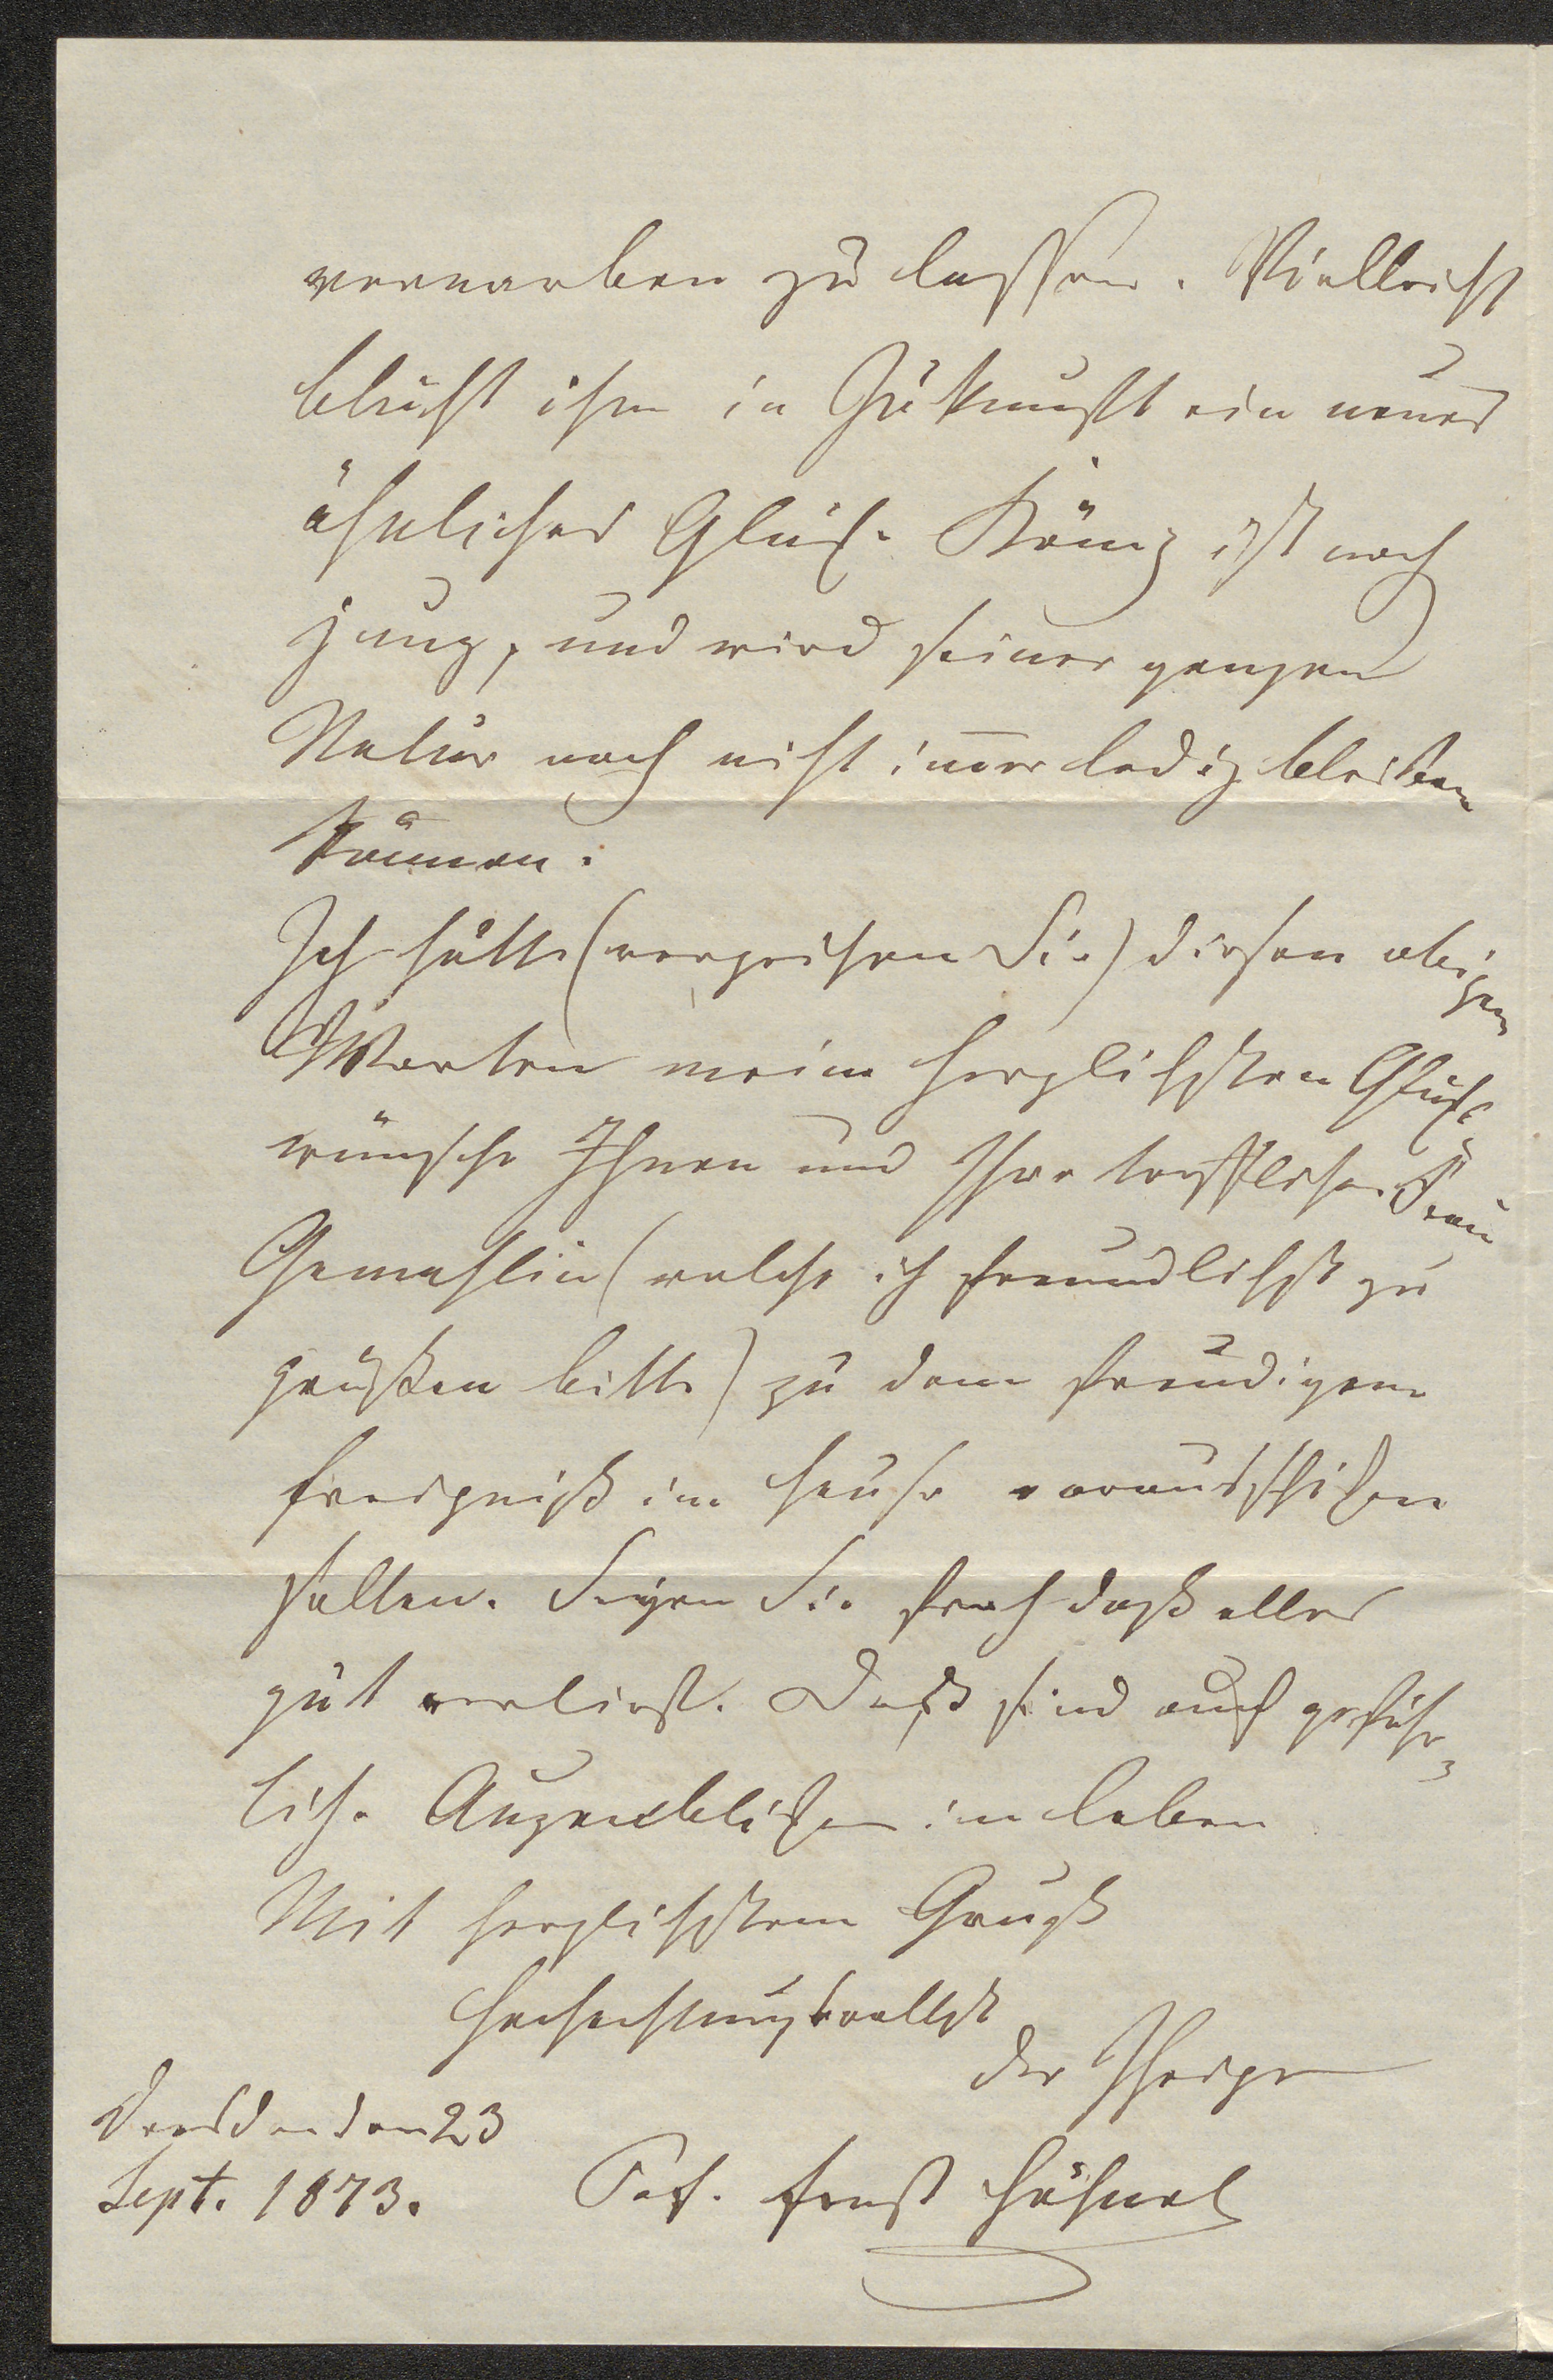 vernarben zu lassen. Vielleicht
blüht ihm in Zukunft ein neues
ähnliches Glück. König ist noch
jung, und wird seiner ganzen
Natur nach nicht im̅er ledig bleiben
können.
Ich hätte (verzeihen Sie) diesen obigen
Worten meine herzlichsten Glück
wünsche Ihnen und Ihre treffliche Frau
Gemahlin (welche ich freundlichst zu
grüßen bitte) zu dem freudigen
Ereigniß im Hause vorausschicken
sollen. Seyen Sie froh daß alles
gut verlief. Daß sind auch gefähr-
liche Augenblicke im Leben
Mit herzlichstem Gruß
Hochachtungsvollst
der Ihrige
Dresden den 23
Sept. 1873.
Prof. Ernst Hähnel